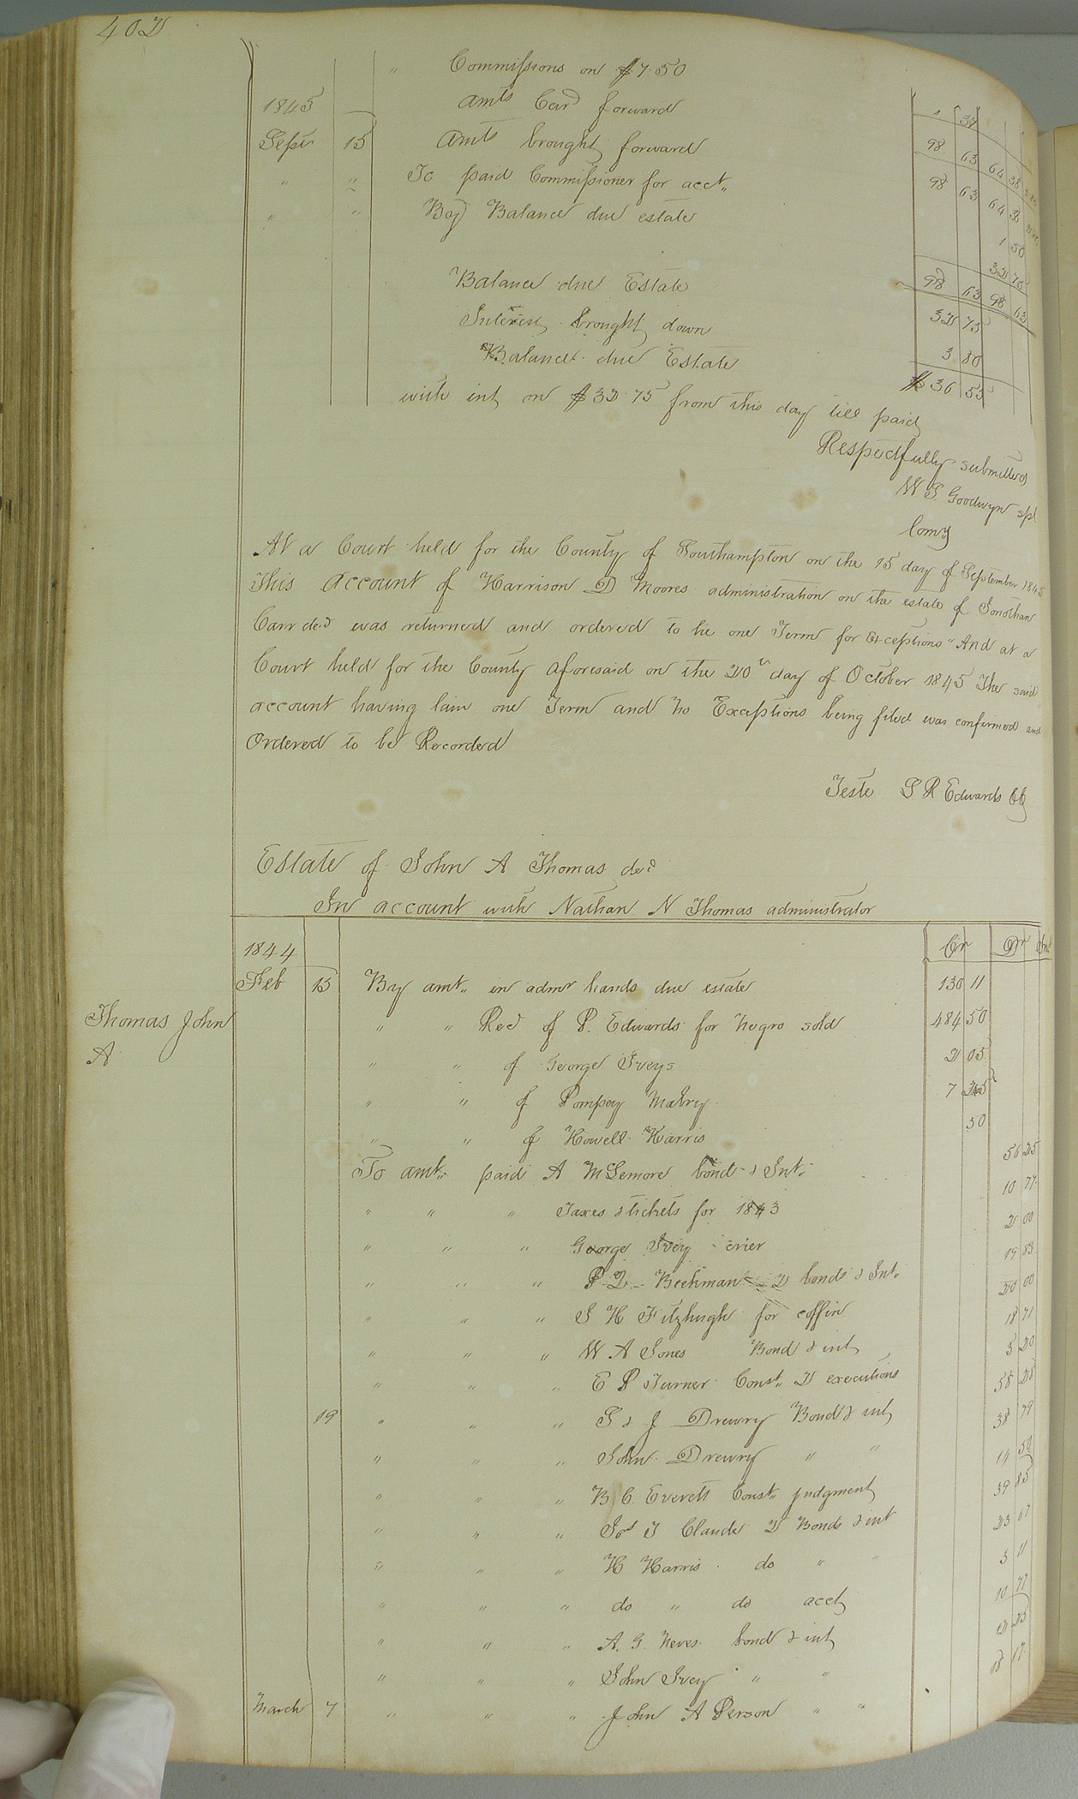 402
" Commissions on $7.50
1845 amts Card forward 1 37
Sept 15 amts brought forward 98 63 64 38
" " To paid Commissioner for acct. 98 63 64 38
" " By Balance due estate 1 50
32 75
98 63 98 63
Balance due Estate 32 75
Interest brought down 3 80
Balance due Estate $36 55
with int on $32 75 from this day till paid
Respectfully submitted
W S Goodwyn spl
Comy
At a Court held for the County of Southampton on the 15 day of September 1845
This account of Harrison D Moores administration on the estate of Jonathan
Carr decd was returned and ordered to lie one Term for Exceptions" And at a
Court held for the County aforesaid on the 20th day of October 1845 The said
account having lain one Term and no Exceptions being filed was confirmed and
Ordered to be Recorded
Teste L R Edwards Clk
Estate of John A Thomas decd
In account with Nathan N Thomas administrator
1844 Cr Dr
Feb 15 By amt. in admr hands due estate 130 11
Thomas John
A
" " Recd of P. Edwards for negro sold 484 50
" " of George Iveys 2 05
" " of Pompey Mabry 7
" " of Howell Harris 50
To amt. paid A McLemore bond & Int. 56 25
" " " Taxes & tickets for 1843 10 77
" " " George Ivey crier 2 00
" " " Beekman 2 bonds & Int. 19 53
" " " S H Fitzhugh for coffin 20 00
" " " W A Jones Bond & int 18 71
" " " E P Turner Const. 2 executions 5 20
19 " " " S & J Drewry Bond & int 58 28
" " " John Drewry " " 38 79
" " " B C Everett Const. judgment 14 52
" " " Jos T Claude 2 Bonds & int 39 85
" " " H Harris do " " 23 17
" " " do " do acct 3 11
" " " A. G. Neves bond & int 10 77
" " " John Ivey " " 2 25
March 7 " " " John A Person " " 18 17